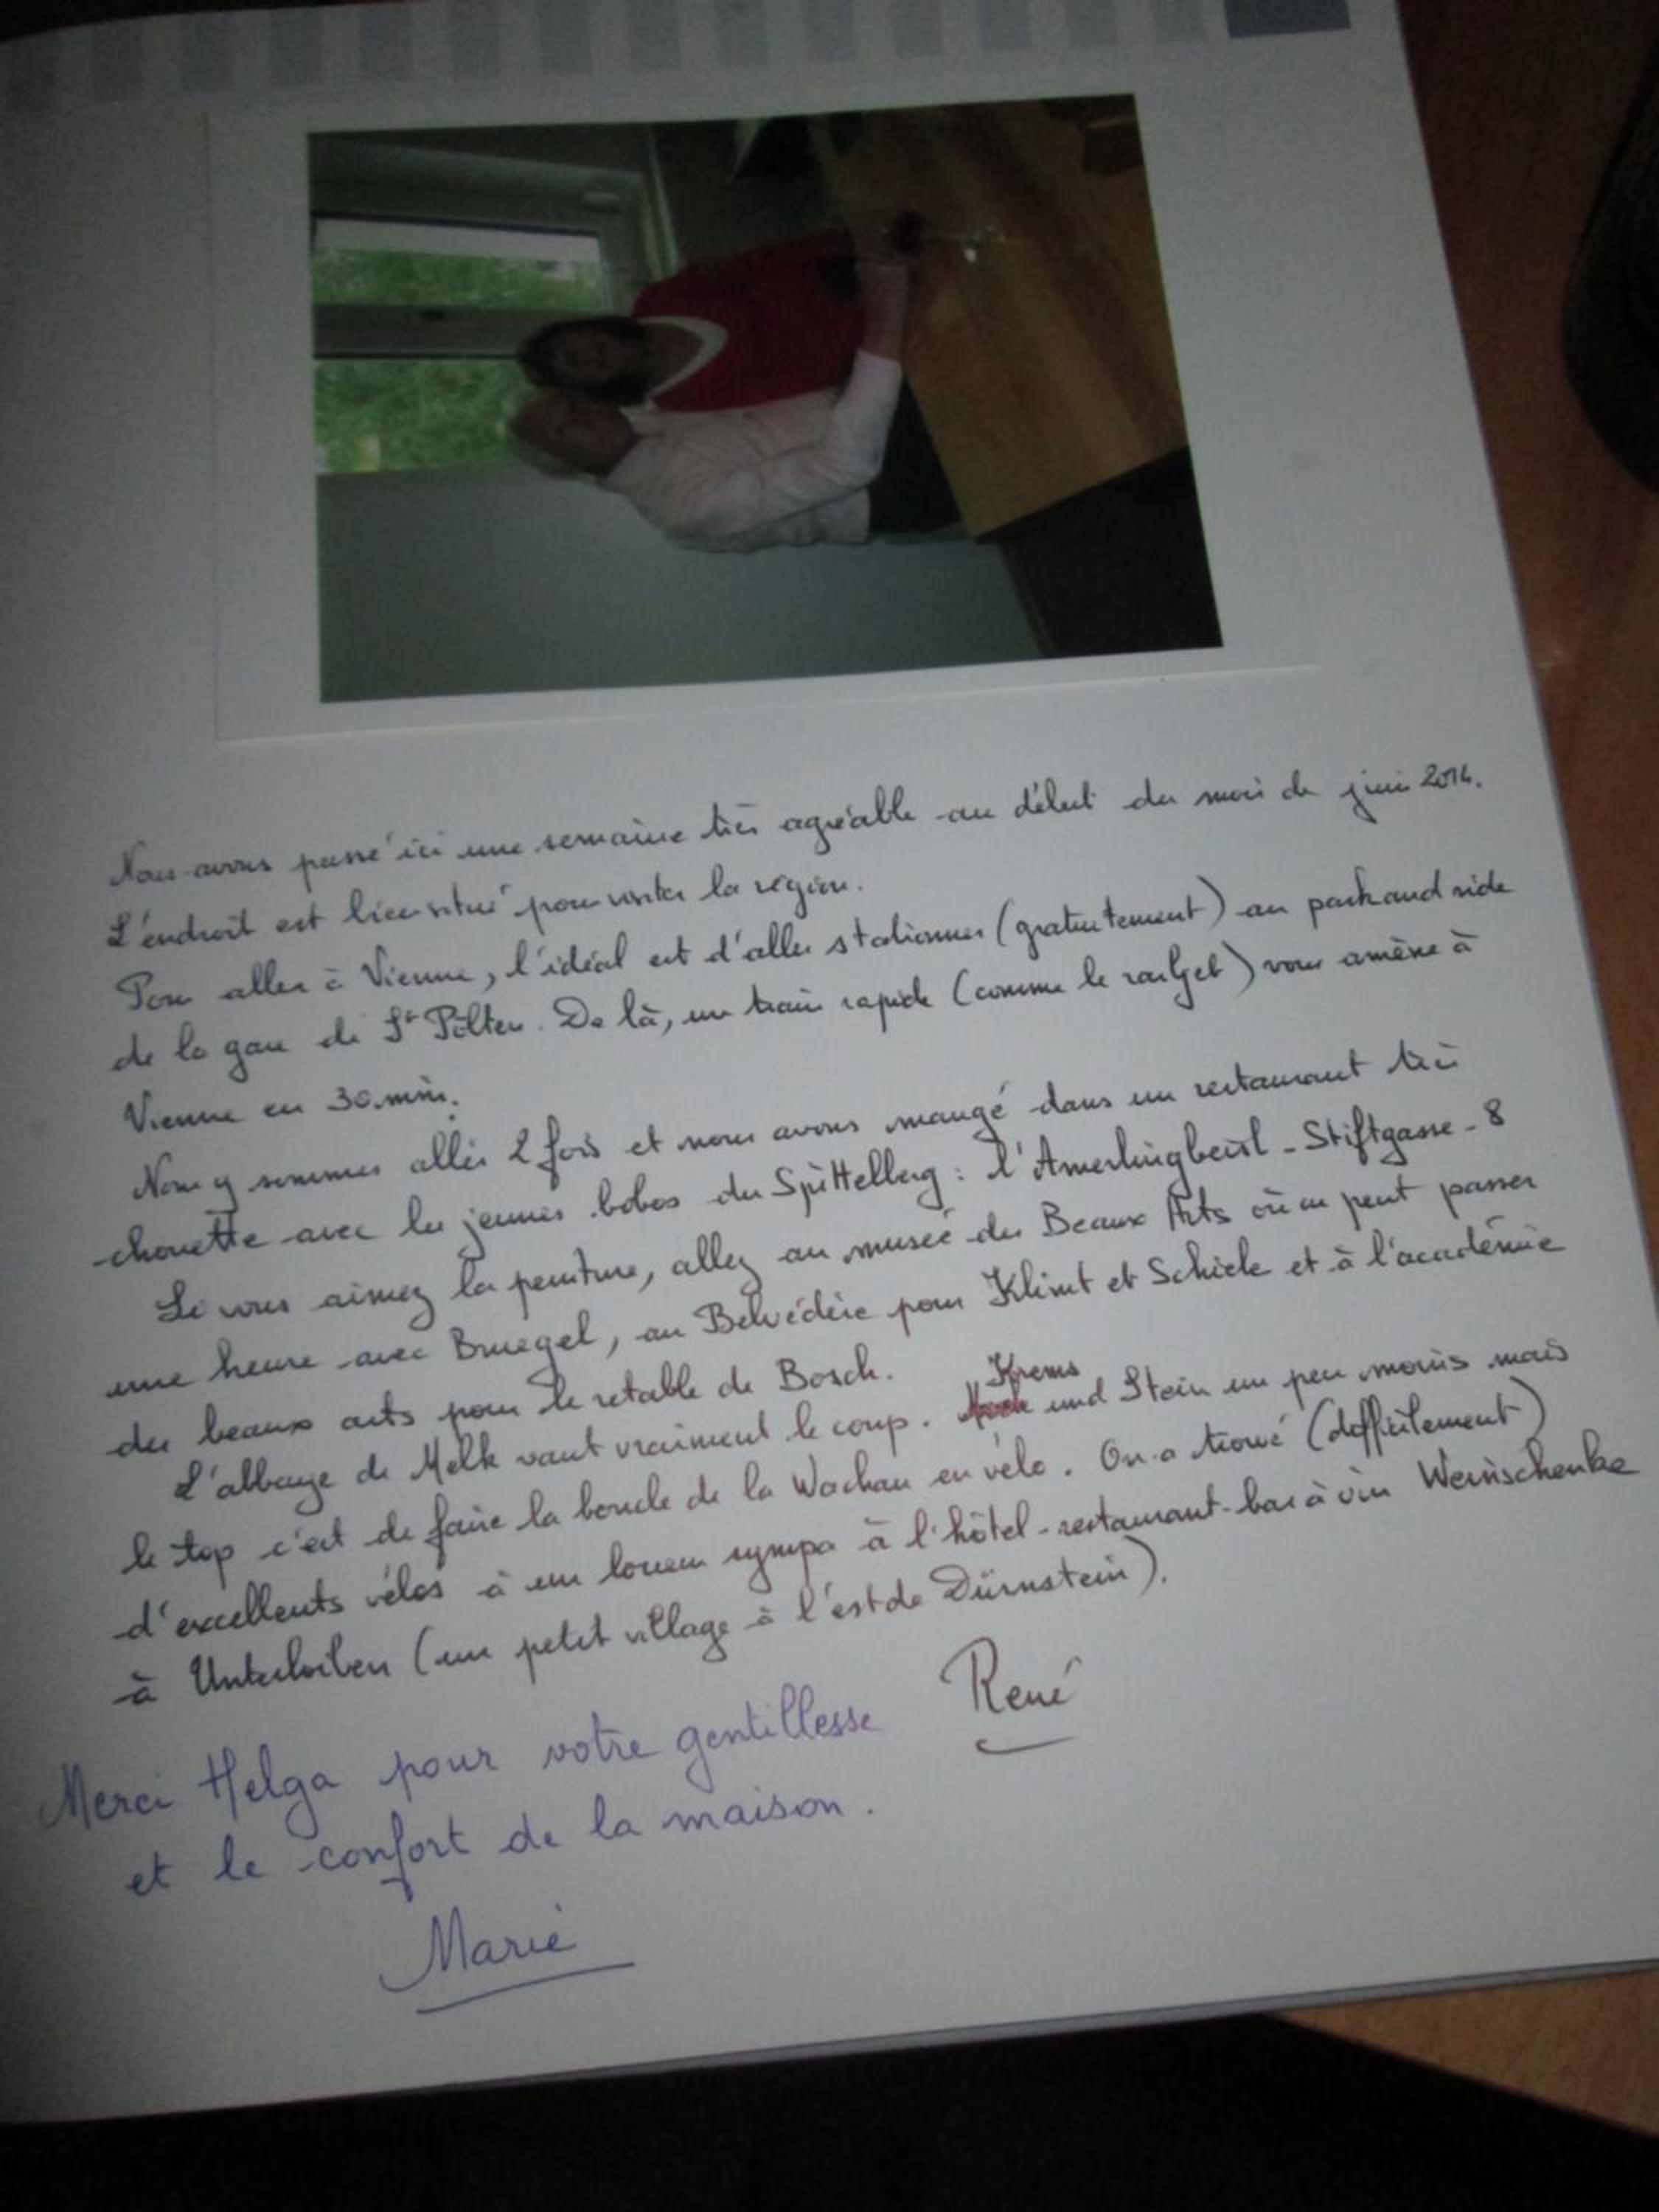 Nous avons passé ici une semaine très agréable au début du mois de juin 2014.
L'endroit est bien situé pour visiter la région.
Pour aller à Vienne, l'idéal est d'aller stationner (gratuitement) au park and ride
de la gare de St Pölten. De là, un train rapide (comme le railjet) vous amène à
Vienne en 30 min.
Nous y sommes allés 2 fois et nous avons mangé dans un restaurant très
chouette avec les jeunes bobos du Spittelberg : l'Amerlingbeisl - Stiftgasse - 8
Si vous aimez la peinture, allez au musée des Beaux Arts où on peut passer
une heure avec Bruegel, au Belvédère pour Klimt et Schiele et à l'académie
des beaux arts pour le retable de Bosch.
L'abbaye de Melk vaut vraiment le coup. Krems und Stein un peu moins mais
le top c'est de faire la boucle de la Wachau en vélo. On a trouvé (difficilement)
d'excellents vélos à un loueur sympa à l'hôtel-restaurant-bar à vin Weinschenke
à Unterloiben (un petit village à l'est de Dürnstein).
René
Merci Helga pour votre gentillesse
et le confort de la maison.
Marie